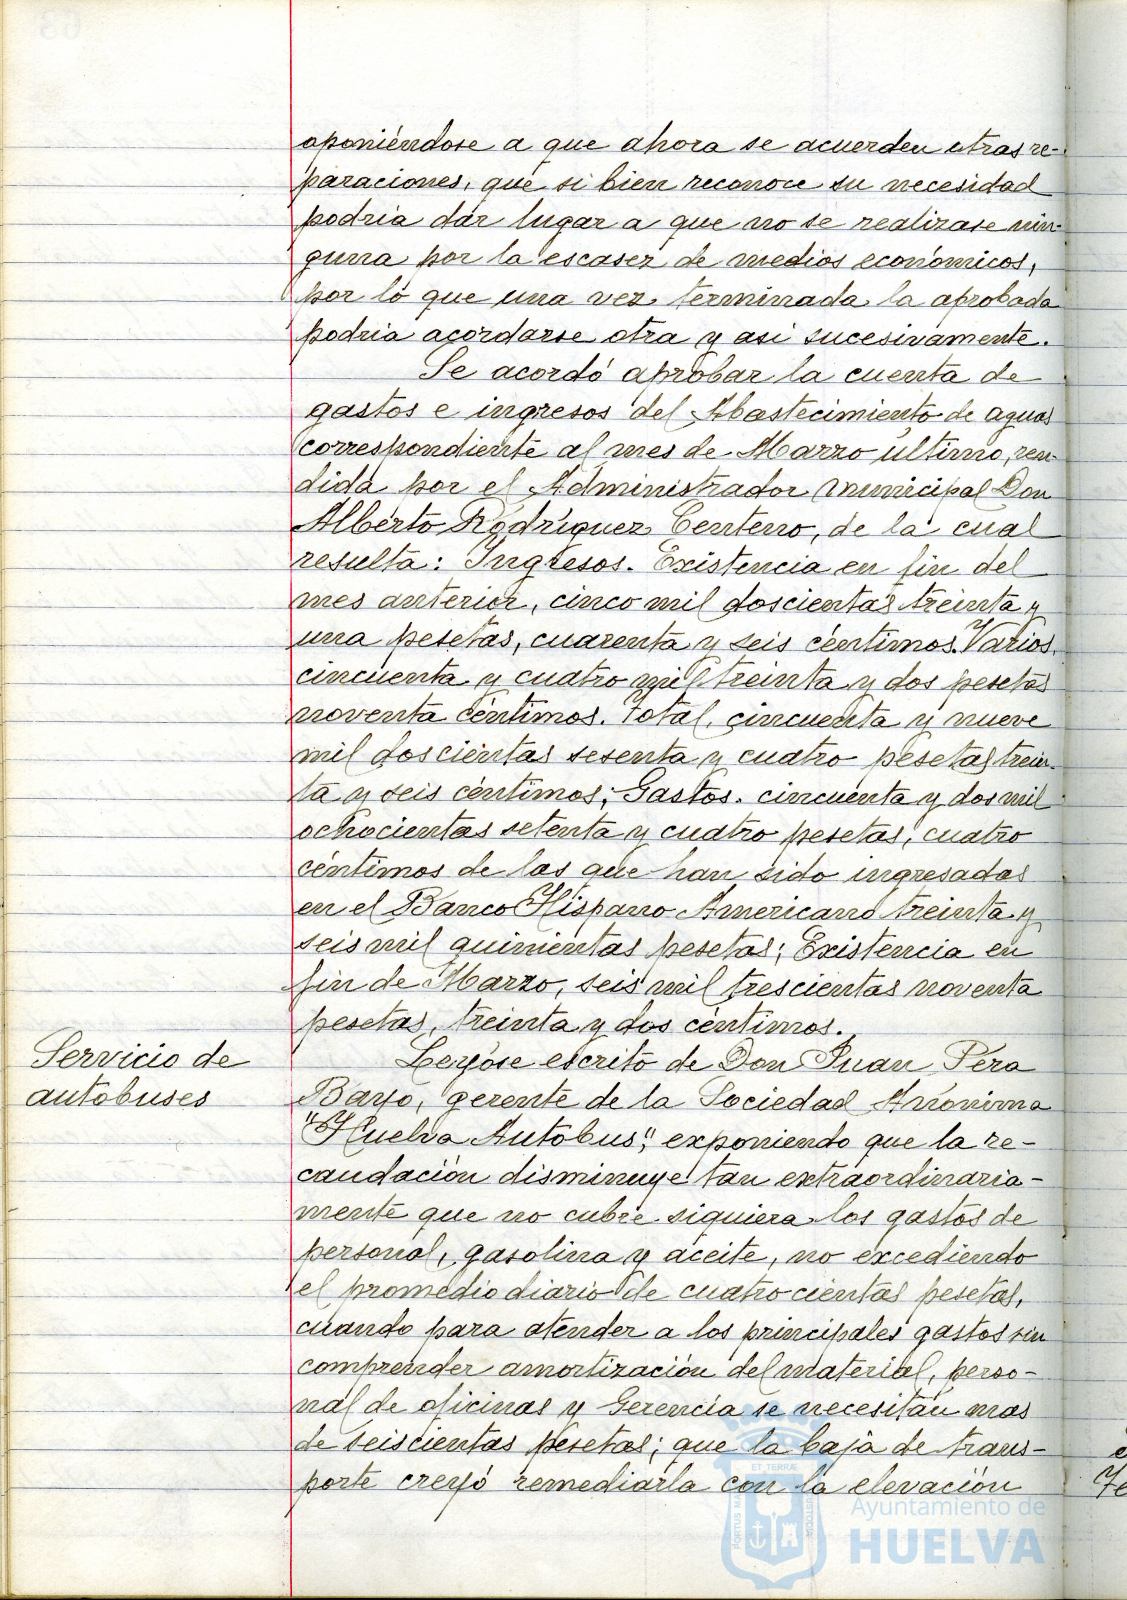 oponiéndose a que ahora se acuerden otras re-
paraciones, que si bien reconoce su necesidad
podria dar lugar a que no se realizase nin-
guna por la escasez de medios económicos,
por lo que una vez terminada la aprobada
podria acordarse otra y asi sucesivamente.
Se acordó aprobar la cuenta de
gastos e ingresos del Abastecimiento de aguas
correspondiente al mes de Marzo ultimo, ren-
dida por el Administrador municipal Don
Alberto Rodriguez Centeno, de la cual
resulta: Ingresos. Existencia en fin del
mes anterior, cinco mil doscientas treinta y
una pesetas, cuarenta y seis céntimos. Varios,
cincuenta y cuatro mil treinta y dos pesetas
noventa céntimos. Total, cincuenta y nueve
mil doscientas sesenta y cuatro pesetas trein-
ta y seis céntimos; Gastos. cincuenta y dos mil
ochocientas setenta y cuatro pesetas, cuatro
céntimos de las que han sido ingresadas
en el Banco Hispano Americano treinta y
seis mil quinientas pesetas; Existencia en
fin de Marzo, seis mil trescientas noventa
pesetas, treinta y dos céntimos.
Servicio de
autobuses
Leyóse escrito de Don Juan Pera
Bayo, gerente de la Sociedad Anónima
"Huelva Autobus", exponiendo que la re-
caudación disminuye tan extraordinaria-
mente que no cubre siquiera los gastos de
personal, gasolina y aceite, no excediendo
el promedio diario de cuatrocientas pesetas,
cuando para atender a los principales gastos sin
comprender amortización del material, perso-
nal de oficinas y Gerencia se necesitan mas
de seiscientas pesetas; que la baja de trans-
porte creyó remediarla con la elevación
Ayuntamiento de
HUELVA